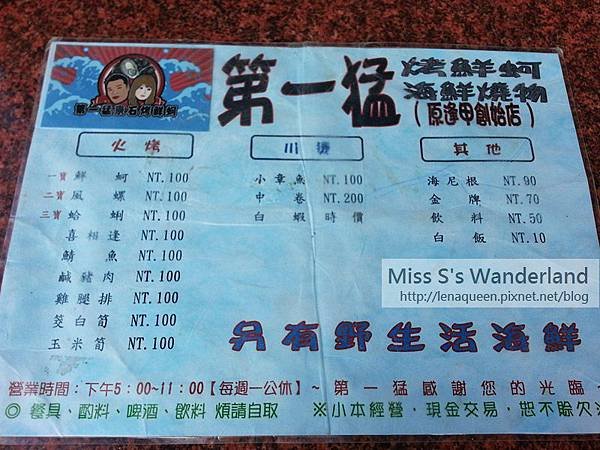 第一猛
炭烤鮮蚵
海鮮燒物
(原逢甲創始店)
第一猛東石炭烤鮮蚵
火烤
一寶鮮蚵 NT.100
二寶風螺 NT.100
三寶蛤蜊 NT.100
喜相逢 NT.100
鯖魚 NT.100
鹹豬肉 NT.100
雞腿排 NT.100
茭白筍 NT.100
玉米筍 NT.100
川燙
小章魚 NT.100
中卷 NT.200
白蝦 時價
其他
海尼根 NT.90
金牌 NT.70
飲料 NT.50
白飯 NT.10
Miss S's Wanderland
http://lenaqueen.pixnet.net/blog
只有野生活海鮮
營業時間:下午5:00~11:00【每週一公休】~ 第一猛感謝您的光臨 ~
◎ 餐具、酌料、啤酒、飲料 煩請自取 ※小本經營,現金交易,恕不賒欠